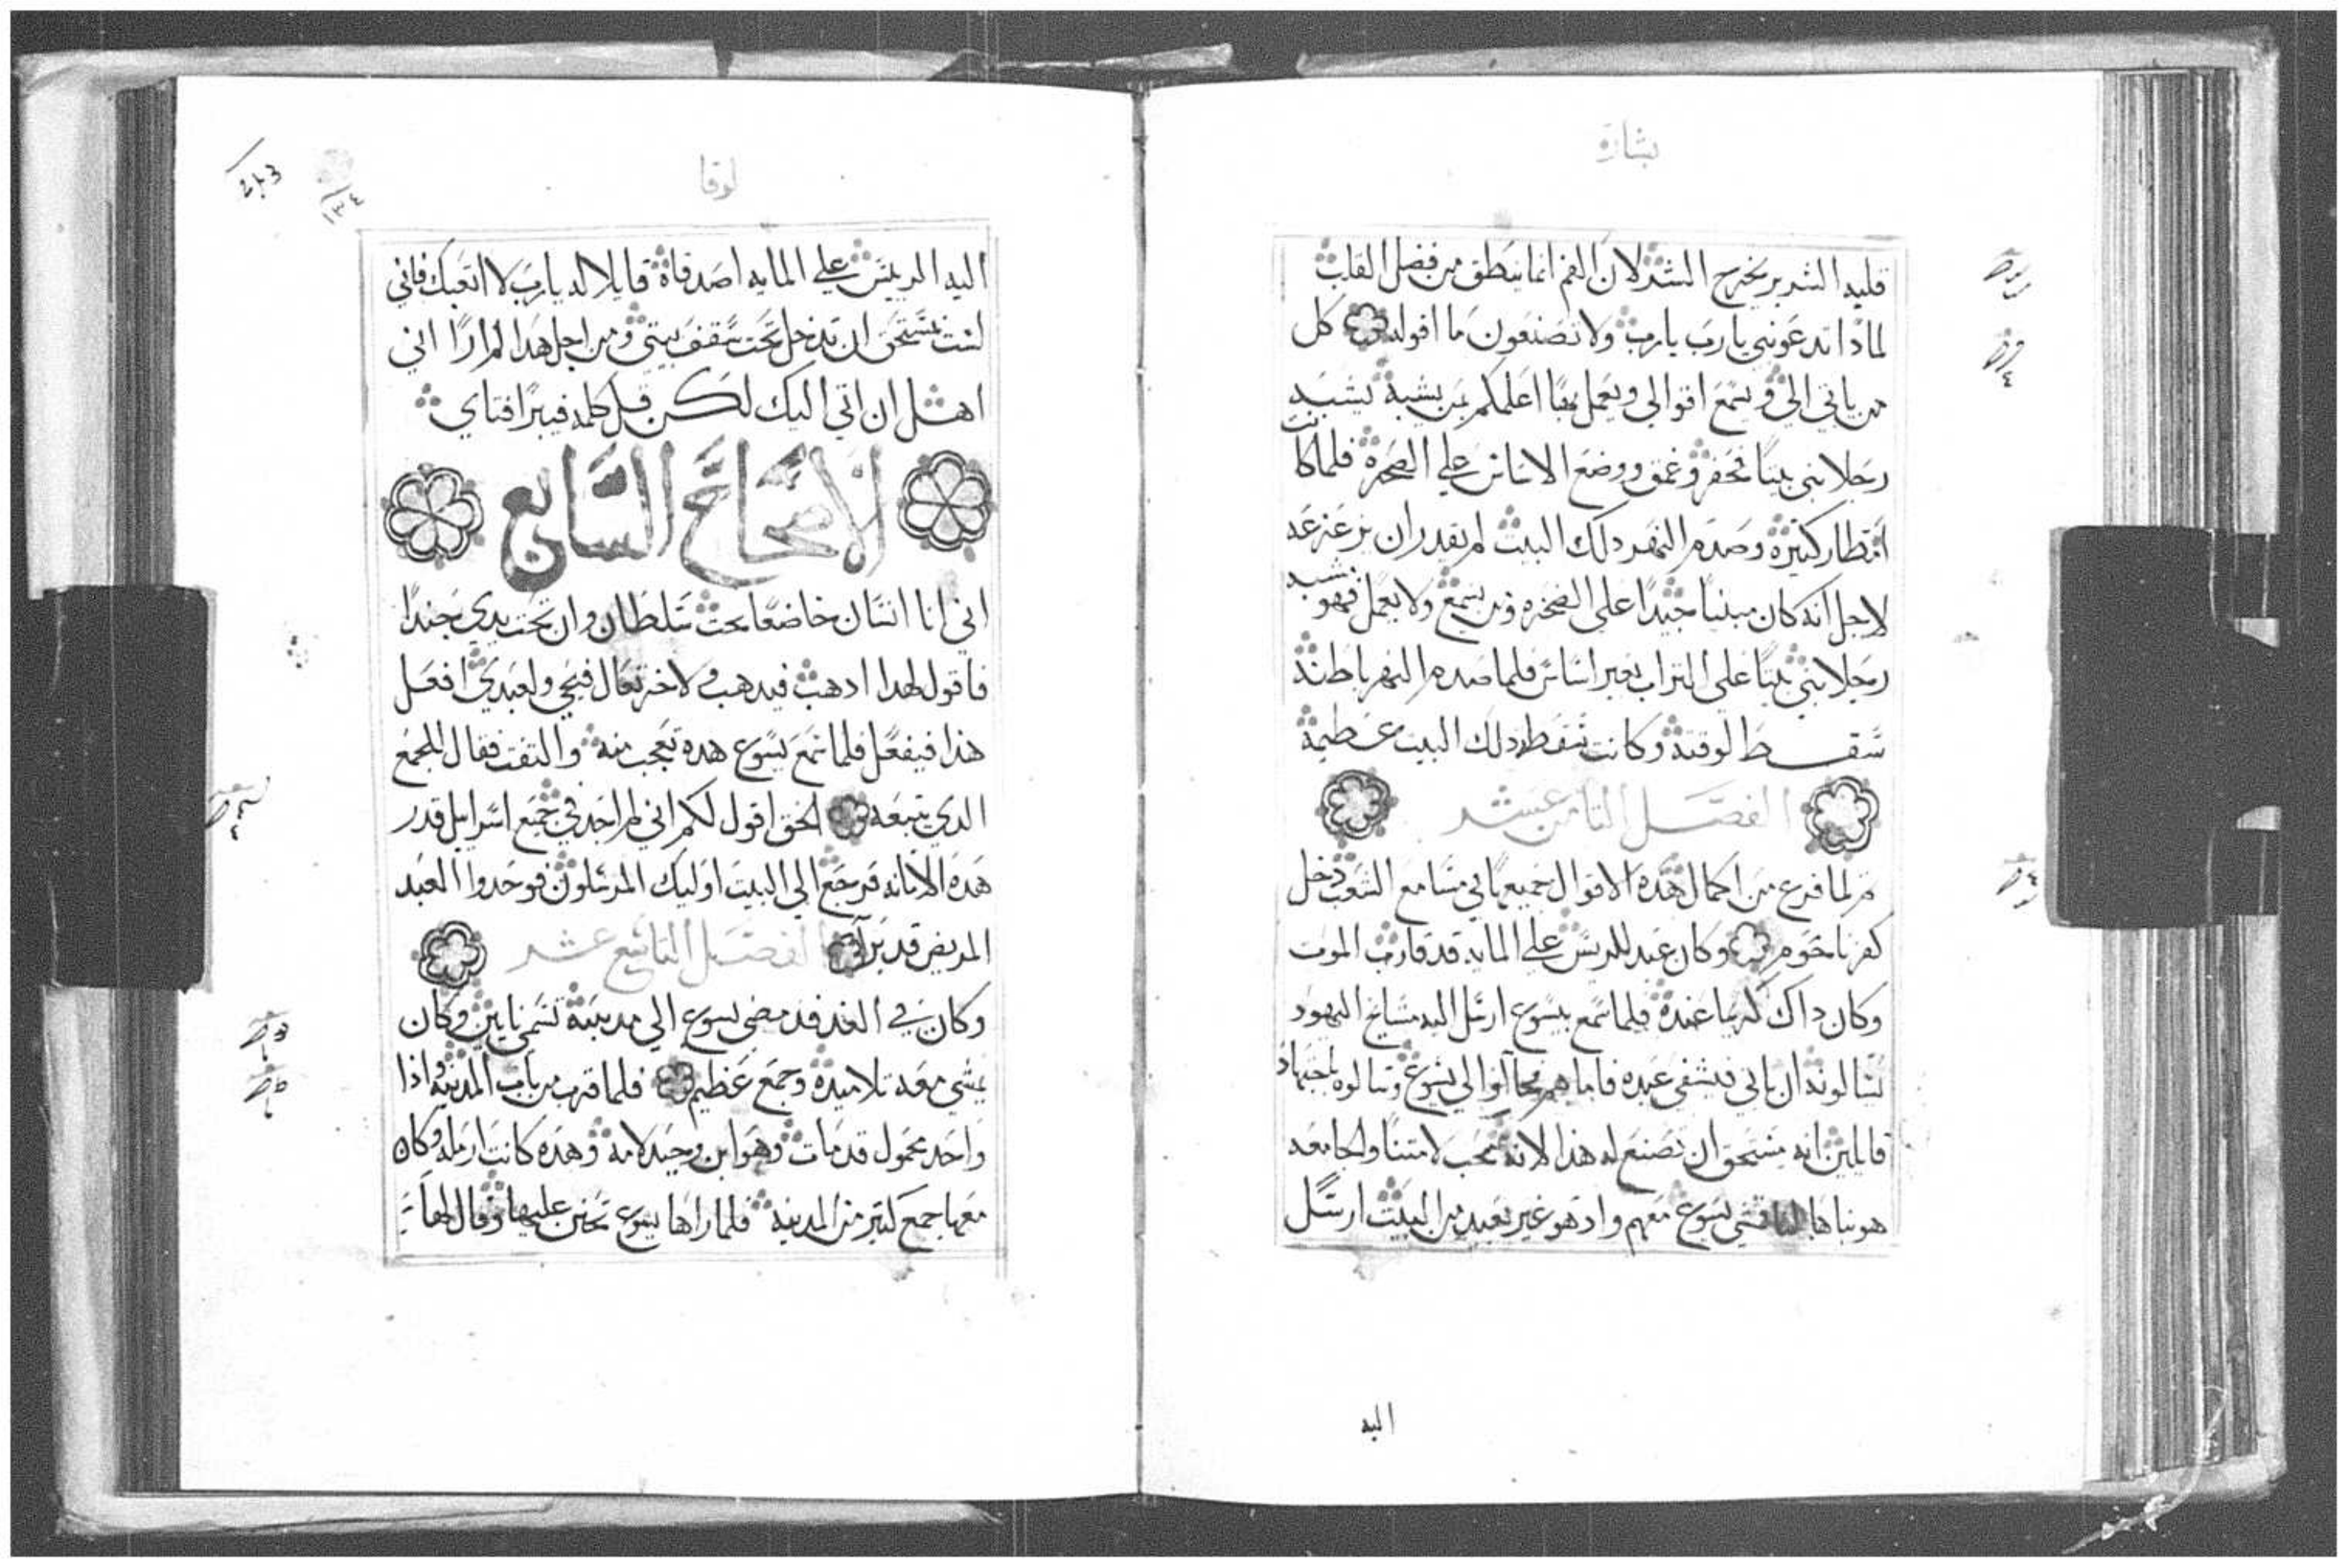 بشارة
قلبه الشرير يخرج الشر لان الفم انما ينطق من فضل القلب
لماذا تدعونني يا رب يا رب ولا تصنعون ما اقوله كل
من ياتي الي ويسمع اقوالي ويعمل بها اعلمكم بمن يشبه يشبه
رجلا بنى بيتا فحفر وغمق ووضع الاساس على الصخره فلما كانت
امطار كثيرة وصدم النهر دلك البيت لم يقدر ان يزعزعه
لاجل انه كان مبنيا جيدا على الصخره ومن يسمع ولا يعمل فهو يشبه
رجلا بنى بيتا على التراب بغير اساس فلما صدم النهر باطنه
سقط لوقته وكانت سقطه دلك البيت عظيمة
الفصل الثامن عشر
ثم لما فرغ من اكمال هده الاقوال جميعها في مسامع الشعب دخل
كفرناحوم وكان عبد للريس على المايه قد قارب الموت
وكان داك كريما عنده فلما سمع بيسوع ارسل اليه مشايخ اليهود
يسالونه ان ياتي فيشفي عبده فاما هم فجاآوا الى يسوع وسالوه باجتهاد
قايلين انه مستحق ان تصنع له هذا لانه محب لامتنا والجامعه
هو بناها لنا فمشي يسوع معهم واد هو غير بعيد من البيت ارسل
اليه
لوقا
١٣٤
اليه الرييس على المايه اصدقاه قايلا له يا رب لا اتعبك فاني
لست مستحق ان تدخل تحت سقف بيتي ومن اجل هدا لم ارا اني
اهل ان اتي اليك لكن قل كلمه فيبرا فتاي
الاصحاح السابع
اني انا انسان خاضعا تحت سلطان وان تحت يدي جندا
فاقول لهدا ادهب فيدهب ولاخر تعال فيجي ولعبدي افعل
هذا فيفعل فلما سمع يسوع هده تعجب منه والتفت فقال للجمع
الدي يتبعه الحق اقول لكم اني لم اجد في جميع اسراييل قدر
هده الامانه فرجع الى البيت اوليك المرسلون فوجدوا العبد
المريض قد برا الفصل التاسع عشر
وكان في الغد قد مضى يسوع الي مدينة تسمى نايين وكان
يمشي معه تلاميده وجمع عظيم فلما قرب من باب المدينه واذا
واحد محمول قد مات وهو ابن وحيد لامه وهده كانت ارمله وكان
معها جمع كثير من المدينه فلما راها يسوع تحنن عليها وقال لها